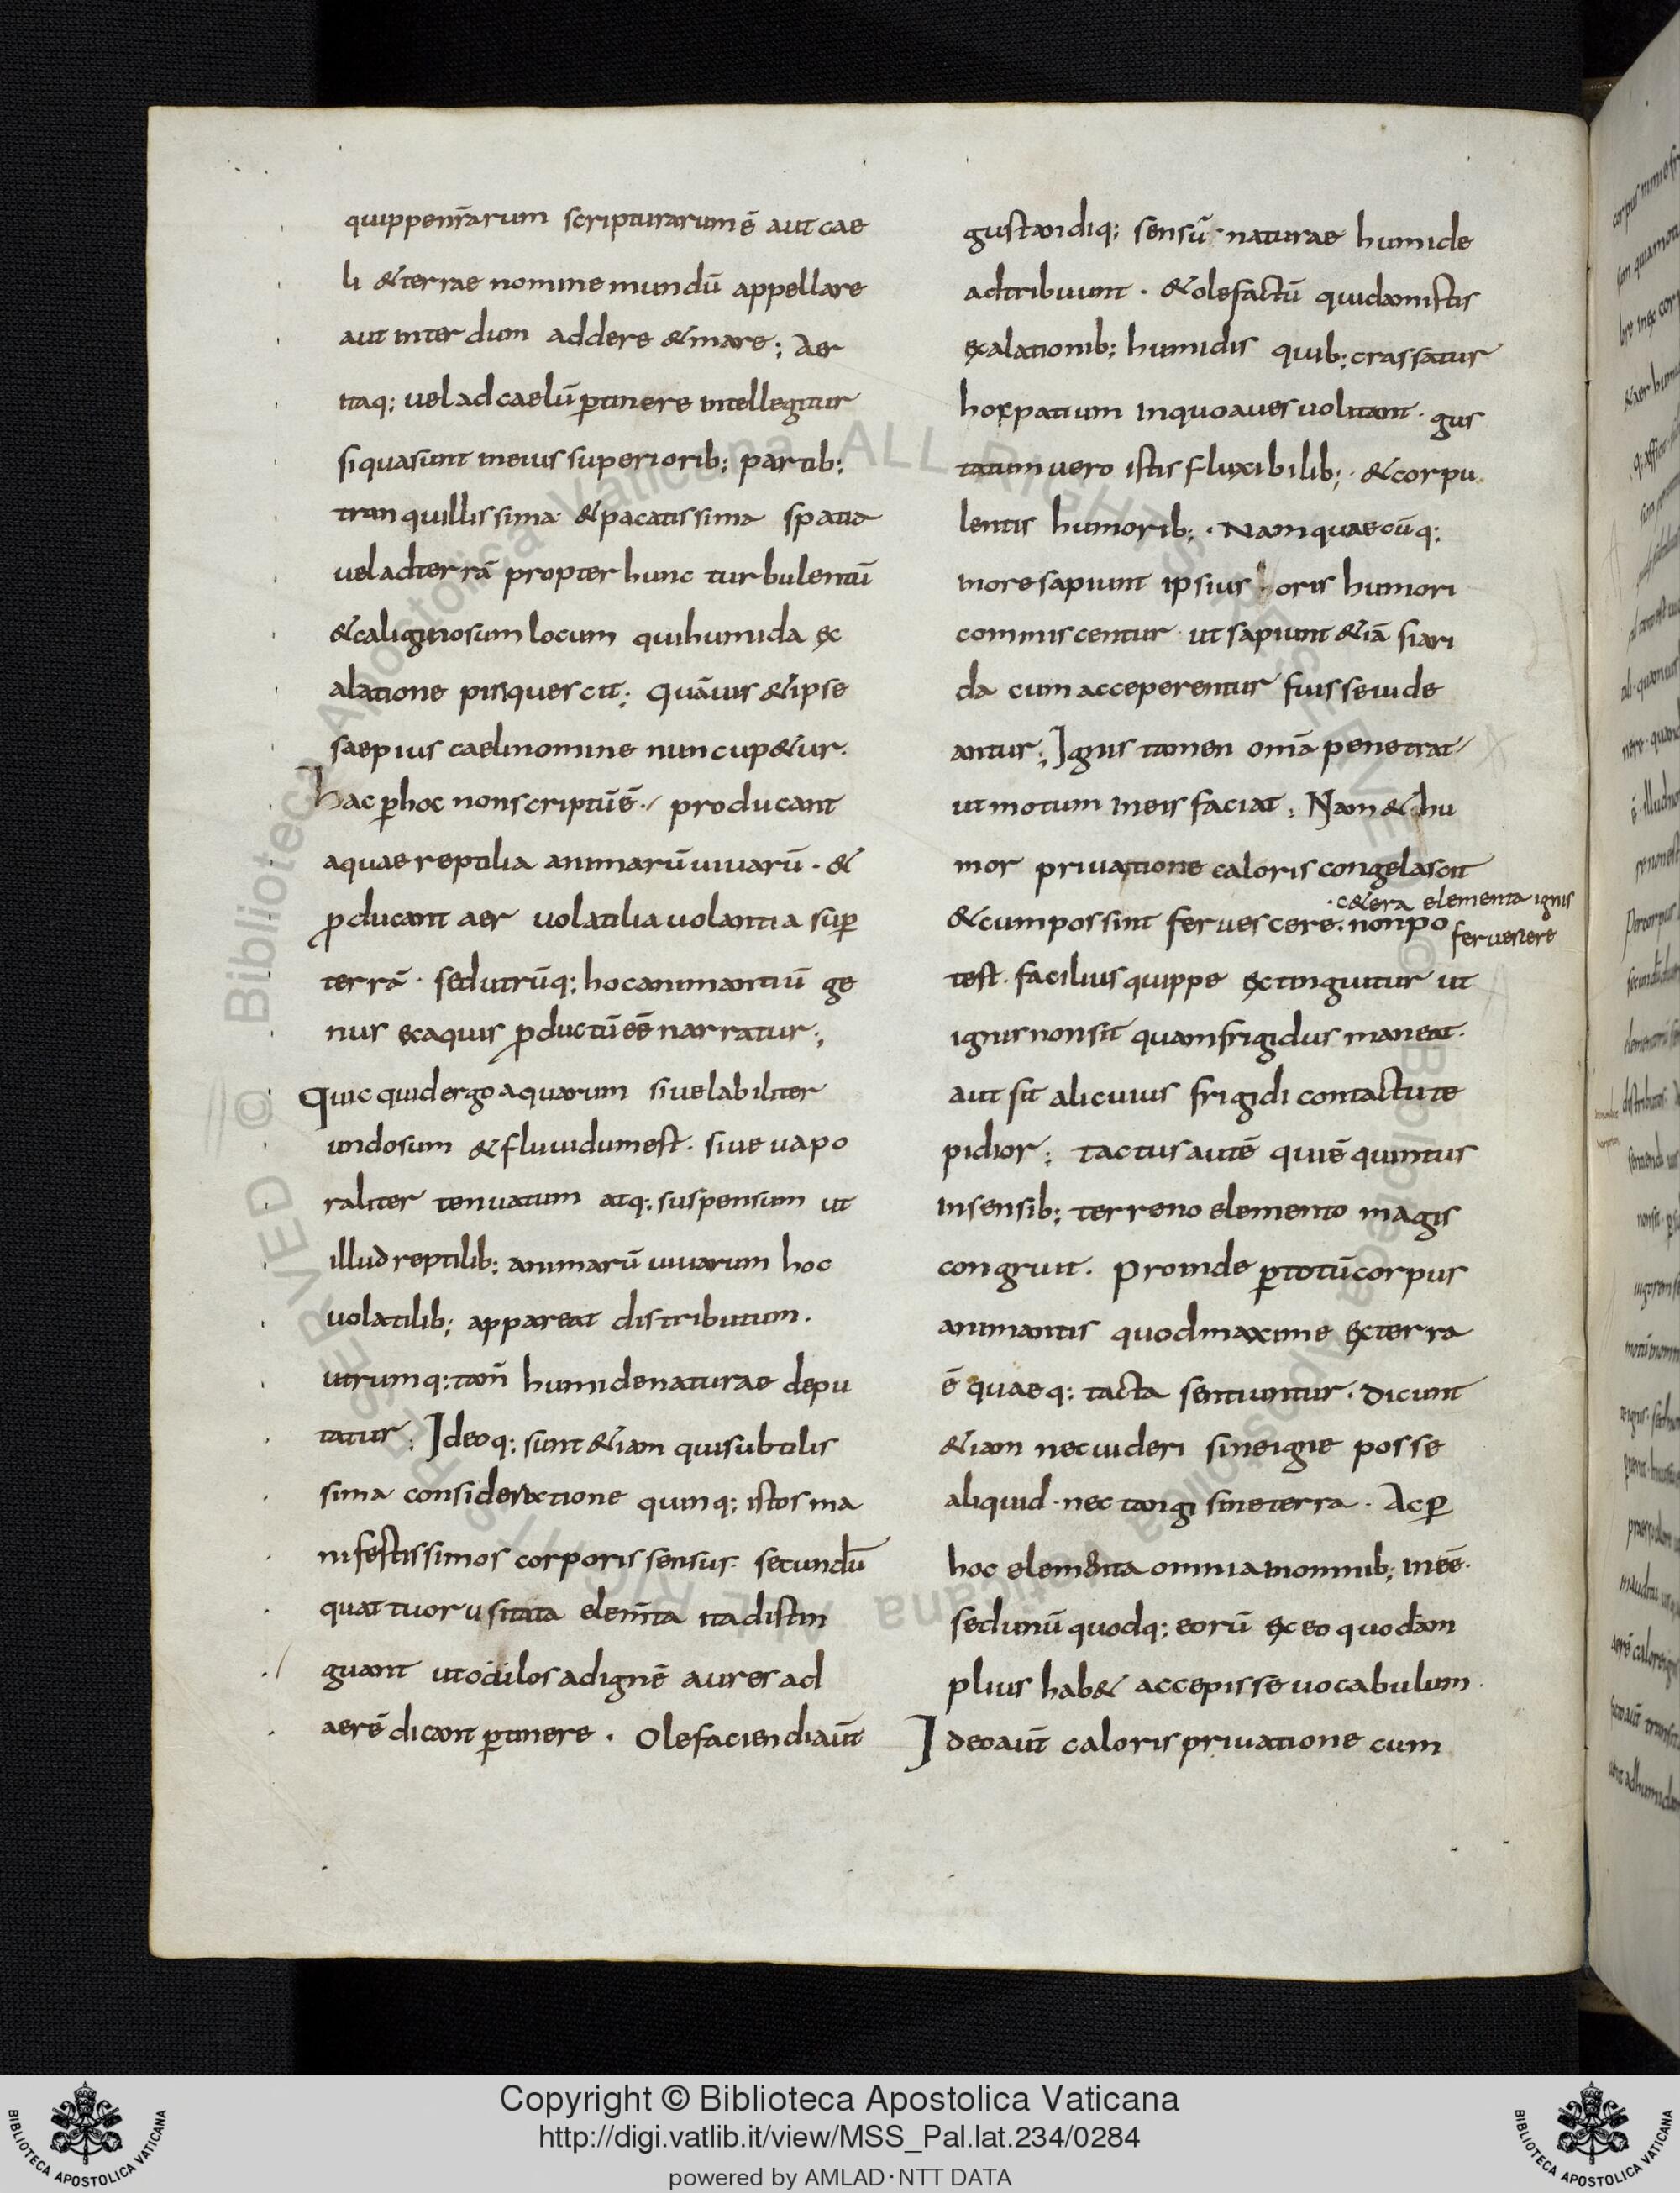 quippenr̄arum scripturarum ē aut cae
li & terrae nomine mundū appellare
aut inter dum addere & mare; Aer
itaq; uel ad caelū ꝑtinere intellegitur
si qua sunt in eius superiorib; partib;
tranquillissima & pacatissima spatia
uel ad terrā propter hunc turbulentū
& caliginosum locum qui humida ex
alatione pinquescit; Quāuis & ipse
saepius caeli nomine nuncup&ur.
hac ꝑ hoc non scriptū ē. producant
aquae reptilia animarū uiuarū. &
ꝓducant aer uolatilia uolantia suꝑ
terrā. sed utrūq; hoc animantiū ge
nus ex aquis ꝓductū eē narratur;
Quicquid ergo aquarum siue labiliter
undosum & fluuidum est. siue uapo
raliter tenuatum atq; suspensum ut
illud reptilib; animarū uiuarum hoc
uolatilib; appareat distributum.
utrumq; tam̄ humide naturae depu
tatur; Ideoq; sunt &iam qui subtilis
sima consideractione quinq; istos ma
nifestissimos corporis sensus. secundū
quattuor usitata elem̄ta ita distin
guant ut oculos ad ignē aures ad
aerē dicant ꝑtinere. Olefaciendi aūt
gustandiq; sensū naturae humide
adtribuunt. & olefactū quidam istis
exalationib; humidis quib; crassatur
hoc spatium in quo aues uolitant. gus
tatum uero istis fluxibilib; & corpu
lentis humorib;. Nam quaecūq;
in ore sapiunt ipsius oris humori
commiscentur ut sapiunt &iā si ari
da cum acceperentur fuisse uide
antur; Ignis tamen om̄a penetrat
ut motum in eis faciat; Nam & hu
mor priuatione caloris congelascit
. c&era elementa ignis
& cum possint feruescere. non po
feruescere
test. facilius quippe extinguitur ut
ignis non sit quam frigidus maneat.
aut sit alicuius frigidi contactu te
pidior; tactus autē qui ē quintus
in sensib; terreno elemento magis
congruit. Proinde ꝑ totū corpus
animantis quod maxime ex terra
ē quaeq; tacta sentiuntur. Dicunt
&iam nec uideri sine igne posse
aliquid. nec tangi sine terra. Ac ꝑ
hoc elementa omnia in omnib; ineē.
sed unū quodq; eorū ex eo quod am
plius hab& accepisse uocabulum.
Ideo aūt caloris priuatione cum
Copyright © Biblioteca Apostolica Vaticana
http://digi.vatlib.it/view/MSS_Pal.lat.234/0284
powered by AMLAD·NTT DATA